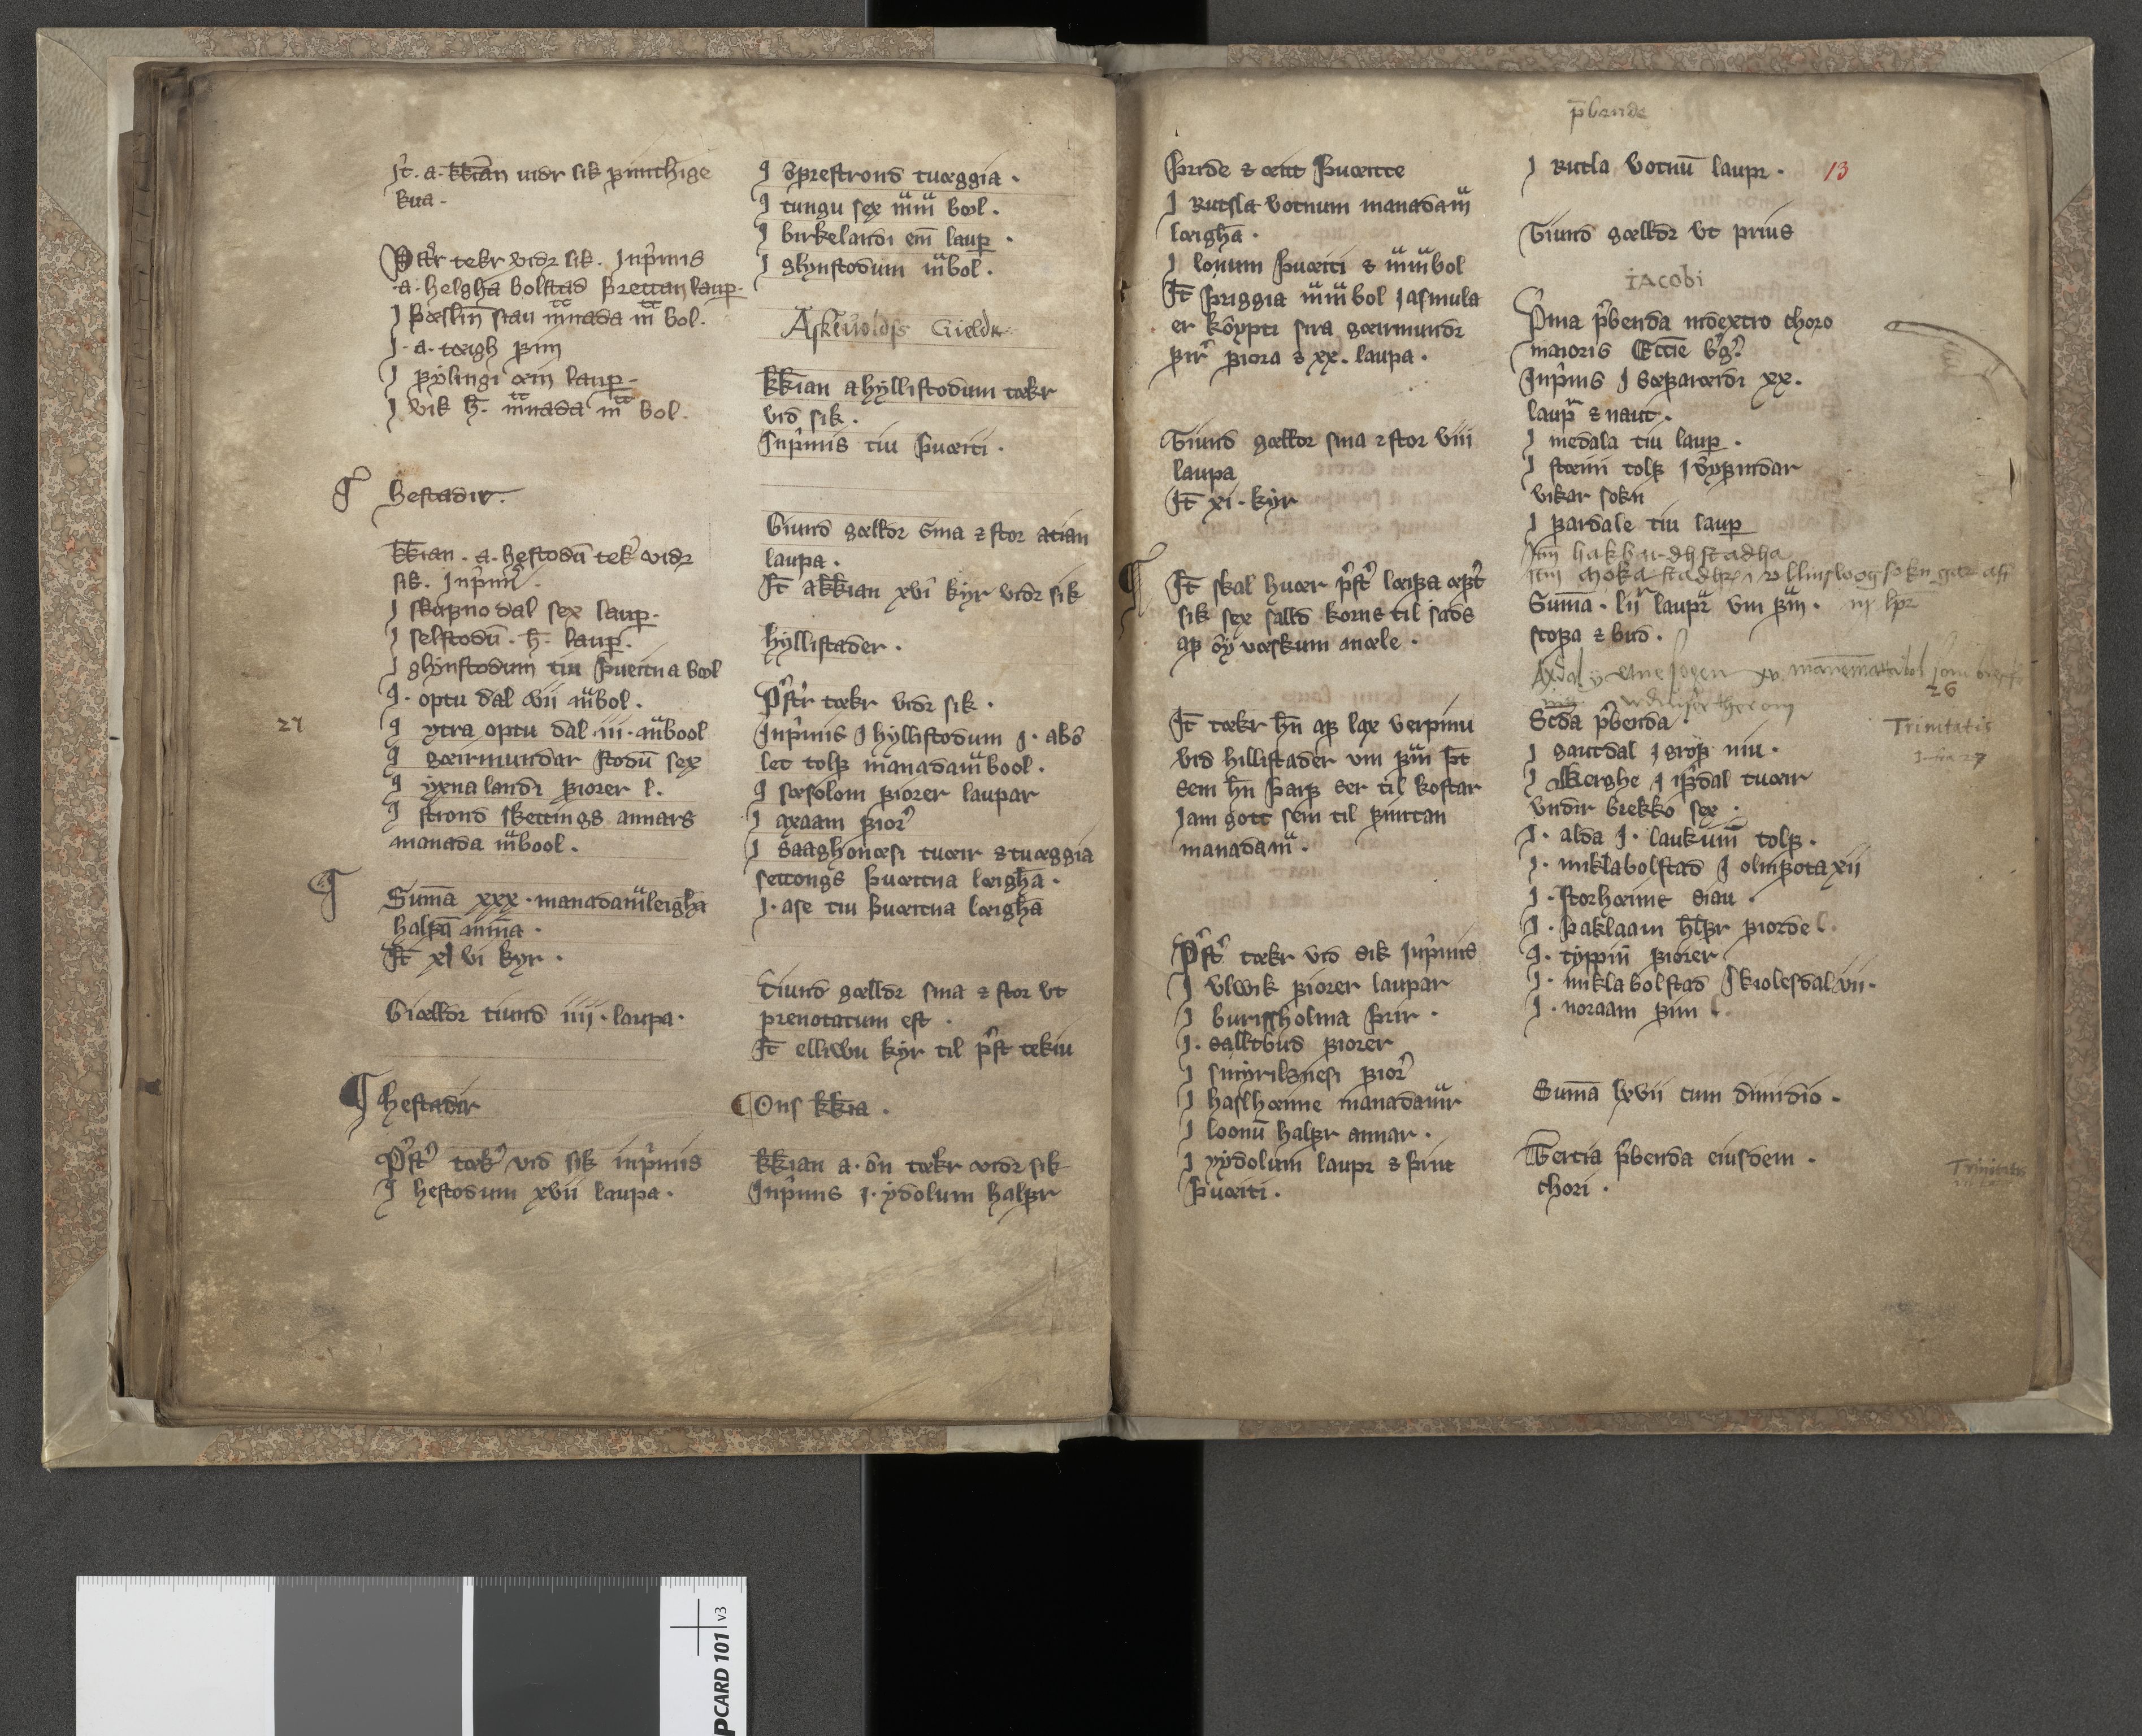 Jt̄. a. kk̄ian uidr sik fimthige
kua.
Pstr̄ tekr widr sik. Jnp̄mis
.a. helgha bolstad þrettan laup.
J þæslin̄ stau mnada m̄ bol.
J. a. tæigh fim
J fylingi æin laup.
J vik h̄. mnada m̄ bol.
hestadir.
kk̄ian. a. hestodū tek widr
sik. Jnp̄mis.
J skafno dal sex laup.
J selstodū. h̄. laup.
J ghynstodum tiu þueitna bool
J. optu dal vii m̄bol.
27
J ytra optu dal. iii. m̄bool
J gæirmundar stodū sex
J yxna landi fiorer l.
J strond skettings annars
manada m̄bool.
Sum̄a xxx. manadam̄leigha
halfū minna.
Jt̄ xl vi kyr.
Giælldr tiund iiij. laupa.
hestadir
P̄st tæk vid sik inp̄mis
J hestodum xvii laupa.
J ofrestrond tuæggia.
J tungu sex m̄m̄ bool.
J birkelandi ein̄ laup.
J ghynstodum m̄bol.
Askeuolds Gield
kk̄ian a hyllistodum tækr
vid sik.
Jnp̄mis tiu þuæiti.
Tiund gælldr sma ⁊ stor atian
laupa.
Jt̄ a kk̄ian xvi kyr vidr sik
hyllistader.
P̄str tækr vidr sik.
Jnp̄mis J hyllistodum J. abō
let tolf manadam̄bool.
J sæsolom fiorer laupar
J axaam fior
J saaghonæsi tuæir ⁊ tuæggia
settongs þuæitna læigha.
J. ase tiu þuæitna læigha
Tiund gælldr sma ⁊ stor vt
prenotatum est.
Jt̄ elliwu kyr til p̄st tekiu
Ons kk̄ia.
kk̄ian a. ōn tækr widr sik
Jnp̄mis J. ydolum halfr
þride ⁊ æitt þuæitte
J Rutsla votnum manadam̄
læigha.
J lonum þuæiti ⁊ m̄m̄bol
Jt̄ þriggia m̄m̄bol J asmula
er kōypti sira gæirmundr
fir fiora ⁊ xx. laupa.
Tiund gælldr sma ⁊ stor viii
laupa
Jt̄ xi. kyr
Jt̄ skal huær p̄st læifa æft
sik sex salld korns til sads
af ōy uæskum mæle.
Jt̄ tækr hn̄ af lax verpinu
vid hillistader vm fim̄ þt̄
sem hn̄ þarf ser til kostar
Jam gott sem til fimtan
manadam̄.
P̄st tækr vid sik Jnp̄mis
J vlwik fiorer laupar
J burisholma þrir.
J. salltbud fiorer
J smyrilsnesi fior
J haslhæime manadam̄r
J loonū halfr annar.
J yydolum laupr ⁊ þriu
þuæiti.
p̄bende
J Rutla votnū laupr. 13
Tiund gælldr vt prius
iacobi
P̄ma p̄benda in dextro choro
maioris Ecc̄ie b̄g.
Jnp̄mis J sæfaræidi xx.
laupr ⁊ naut.
J medala tiu laup.
J stæini tolf J vyfindar
vikar sokn
J fardale tiu laup
Jtm̄ hakbardhstadha
Sum̄a. lii laupr vm fim̄. iij lpr
stofa ⁊ bud.
26
Sc̄da p̄benda. Trinitatis
J gautdal J grof niu.
J Berghe J ifdal tuæir
vndir brekko sex.
J. alda J. laukum̄ tolf.
J. miklabolstad J olmfota xii
J. storhæime siau.
J. þaklaam hlfr fiorde l.
J. typpin̄ fiorer
J. mikla bolstad J kiolesdal vii.
J. noraam fim l.
Sum̄a lxvii cum dimidio.
Tertia p̄benda eiusdem. Trinitatis
chori.
PCARD 101 v3